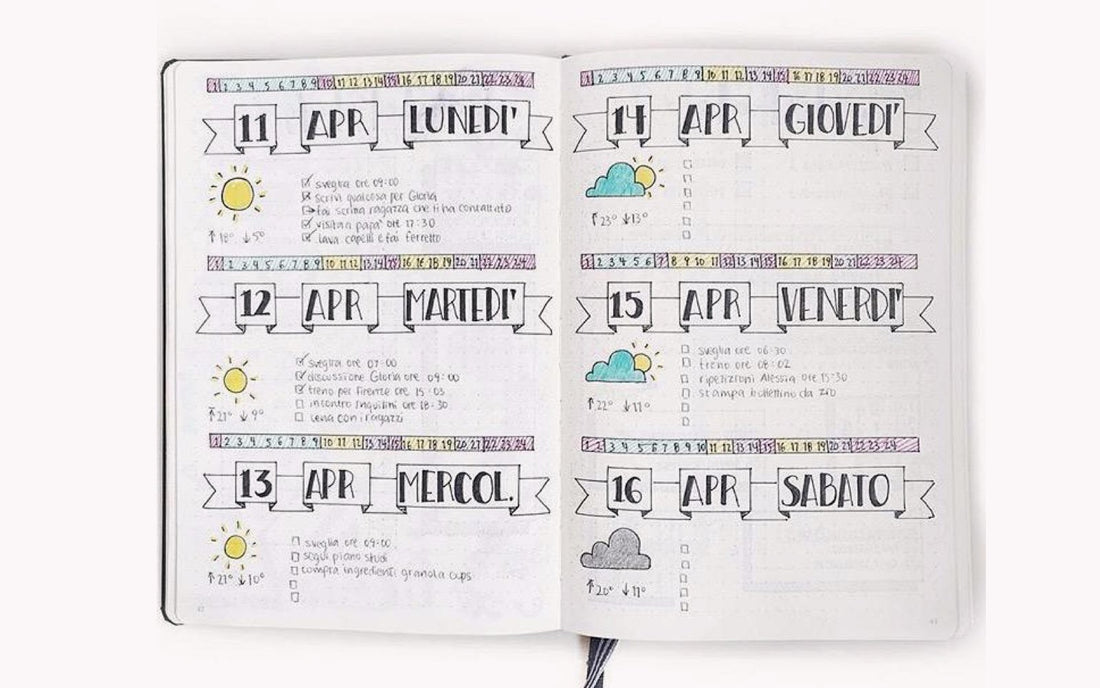 1 2 3 4 5 6 7 8 9 10 11 12 13 14 15 16 17 18 19 20 21 22 23 24
11 APR LUNEDI'
sveglia ore 09:00
scrivi qualcosa per Gloria
fai scrina ragazza che ti ha contattato
visita a papà ore 17:30
lava capelli e fai ferretto
↑18° ↓5°
1 2 3 4 5 6 7 8 9 10 11 12 13 14 15 16 17 18 19 20 21 22 23 24
12 APR MARTEDI'
sveglia ore 07:00
discussione Gloria ore 09:00
treno per Firenze ore 15:03
incontro inquilini ore 18:30
cena con i ragazzi
↑21° ↓9°
1 2 3 4 5 6 7 8 9 10 11 12 13 14 15 16 17 18 19 20 21 22 23 24
13 APR MERCOL.
sveglia ore 09:00
segui piano studi
compra ingredienti granola cups
↑21° ↓10°
1 2 3 4 5 6 7 8 9 10 11 12 13 14 15 16 17 18 19 20 21 22 23 24
14 APR GIOVEDI'
↑23° ↓13°
1 2 3 4 5 6 7 8 9 10 11 12 13 14 15 16 17 18 19 20 21 22 23 24
15 APR VENERDI'
sveglia ore 06:30
treno ore 08:02
ripetizioni Alessia ore 15:30
stampa bollettino da zio
↑22° ↓11°
1 2 3 4 5 6 7 8 9 10 11 12 13 14 15 16 17 18 19 20 21 22 23 24
16 APR SABATO
↑20° ↓11°